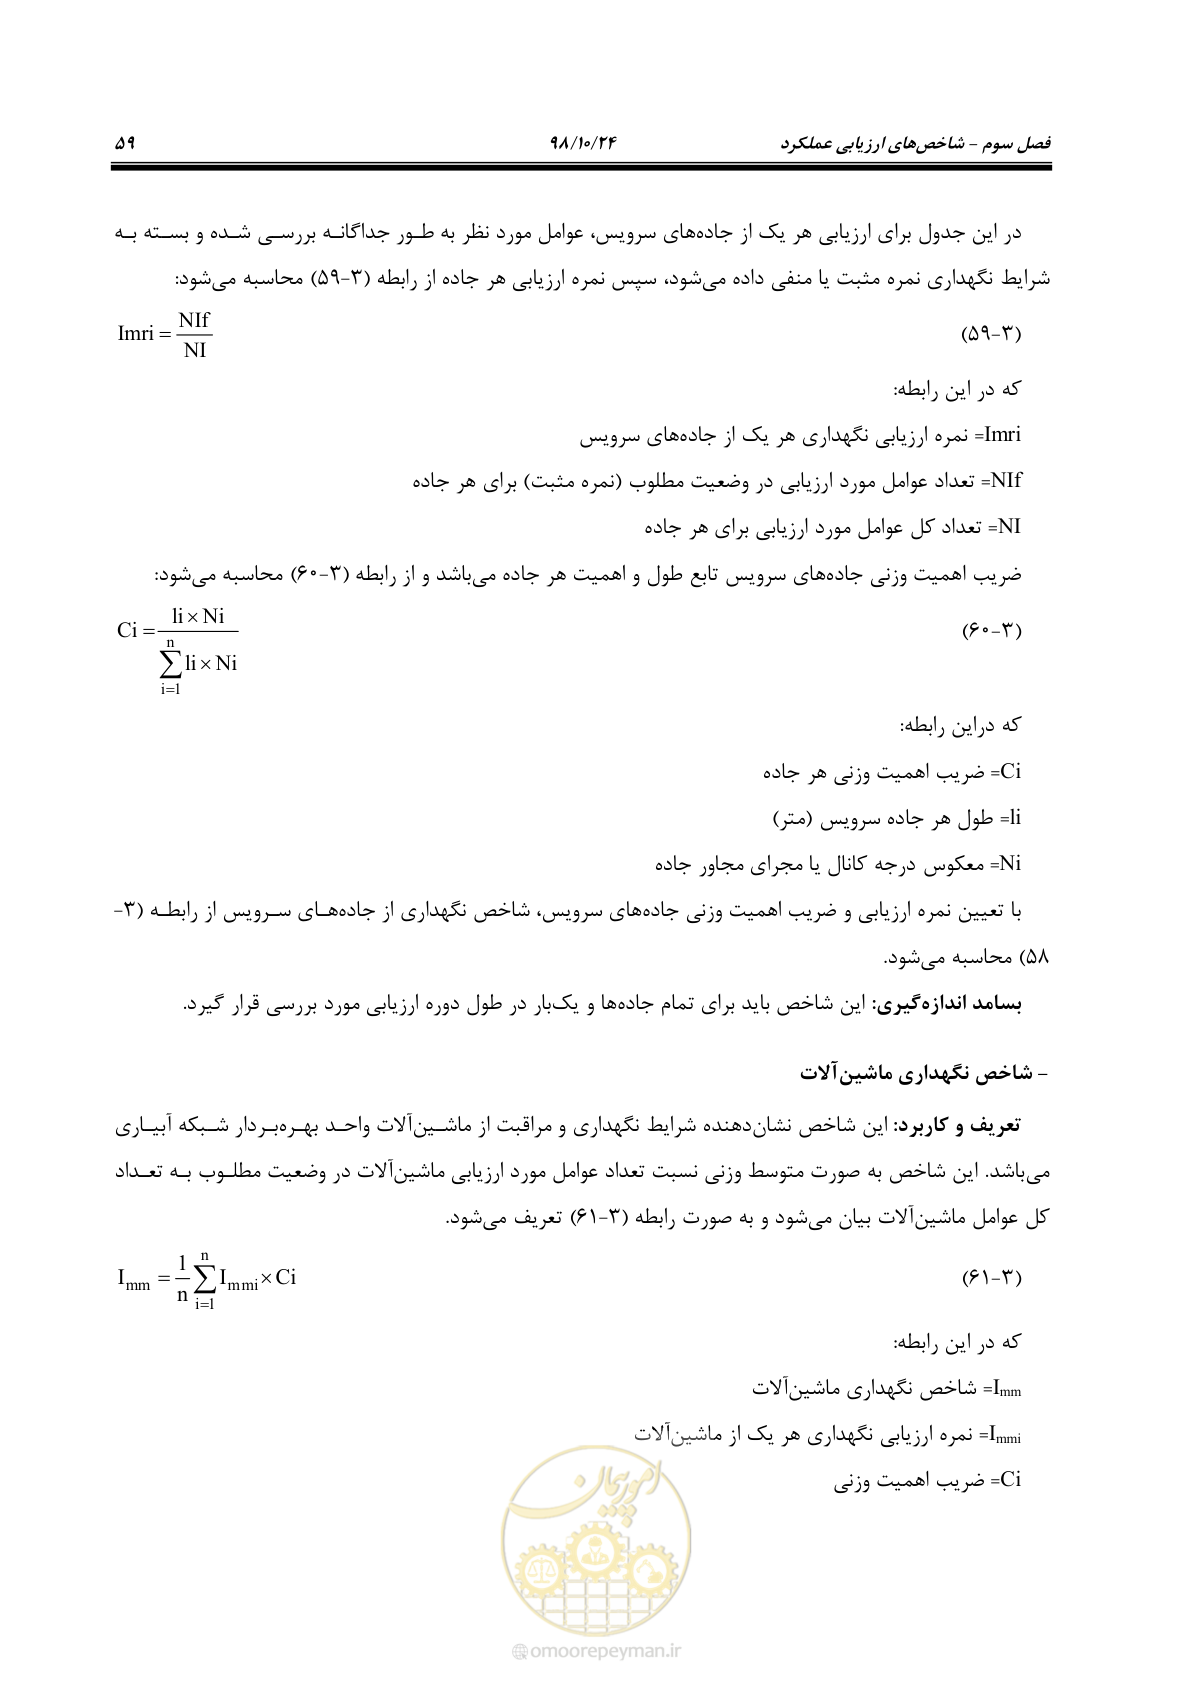 فصل سوم – شاخص‌های ارزیابی عملکرد ۹۸/۱۰/۲۴ ۵۹
در این جدول برای ارزیابی هر یک از جاده‌های سرویس، عوامل مورد نظر به طـور جداگانـه بررسـی شـده و بسـته بـه
شرایط نگهداری نمره مثبت یا منفی داده می‌شود، سپس نمره ارزیابی هر جاده از رابطه (۳-۵۹) محاسبه می‌شود:
Imri = NIf / NI (۳-۵۹)
که در این رابطه:
Imri= نمره ارزیابی نگهداری هر یک از جاده‌های سرویس
NIf= تعداد عوامل مورد ارزیابی در وضعیت مطلوب (نمره مثبت) برای هر جاده
NI= تعداد کل عوامل مورد ارزیابی برای هر جاده
ضریب اهمیت وزنی جاده‌های سرویس تابع طول و اهمیت هر جاده می‌باشد و از رابطه (۳-۶۰) محاسبه می‌شود:
Ci = li × Ni / ∑ i=1 n li × Ni (۳-۶۰)
که دراین رابطه:
Ci= ضریب اهمیت وزنی هر جاده
li= طول هر جاده سرویس (متر)
Ni= معکوس درجه کانال یا مجرای مجاور جاده
با تعیین نمره ارزیابی و ضریب اهمیت وزنی جاده‌های سرویس، شاخص نگهداری از جاده‌هـای سـرویس از رابطـه (۳-
۵۸) محاسبه می‌شود.
بسامد اندازه‌گیری: این شاخص باید برای تمام جاده‌ها و یک‌بار در طول دوره ارزیابی مورد بررسی قرار گیرد.
– شاخص نگهداری ماشین‌آلات
تعریف و کاربرد: این شاخص نشان‌دهنده شرایط نگهداری و مراقبت از ماشـین‌آلات واحـد بهـره‌بـردار شـبکه آبیـاری
می‌باشد. این شاخص به صورت متوسط وزنی نسبت تعداد عوامل مورد ارزیابی ماشین‌آلات در وضعیت مطلـوب بـه تعـداد
کل عوامل ماشین‌آلات بیان می‌شود و به صورت رابطه (۳-۶۱) تعریف می‌شود.
Imm = 1/n ∑ i=1 n Immi × Ci (۳-۶۱)
که در این رابطه:
Imm= شاخص نگهداری ماشین‌آلات
Immi= نمره ارزیابی نگهداری هر یک از ماشین‌آلات
Ci= ضریب اهمیت وزنی
امور پیمان
@omoorepeyman.ir